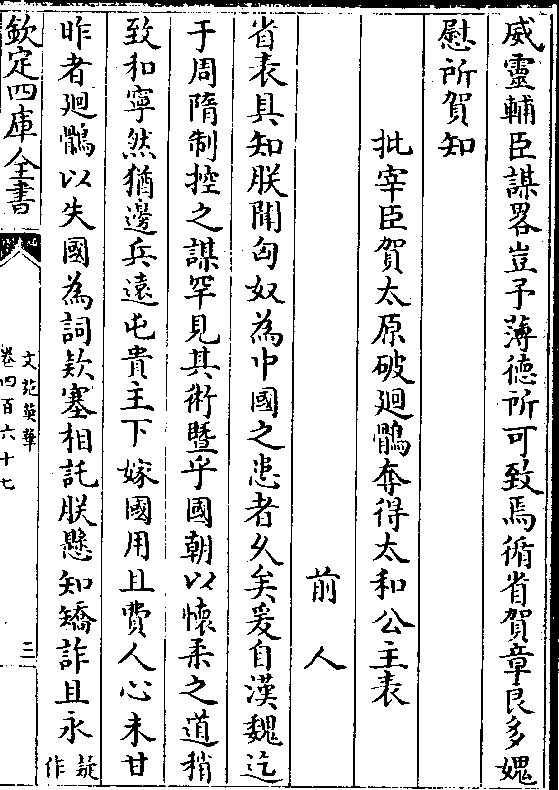 威靈輔臣謀畧豈予薄德所可致焉循省賀章良多媿
慰所賀知
批宰臣賀太原破廻鶻奪得太和公主表
前人
省表具知朕聞匈奴為中國之患者乆矣爰自漢魏迄
于周隋制控之謀罕見其術暨乎國朝以懷柔之道稍
致和寧然猶邊兵遠屯貴主下嫁國用且費人心未甘
昨者廻鶻以失國為詞欵塞相託朕懸知矯詐且永疑作
欽定四庫全書
文苑英華
卷四百六十七
三